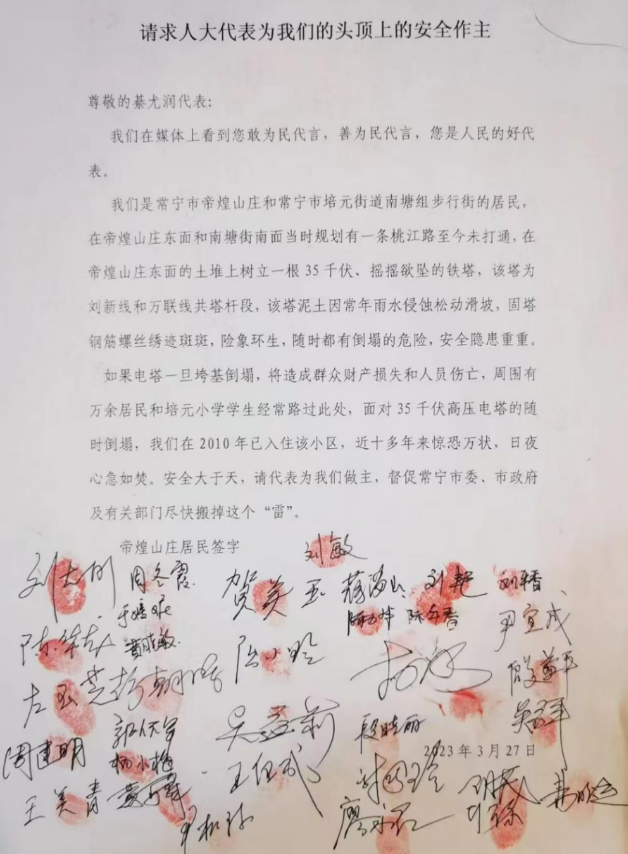 请求人大代表为我们的头顶上的安全作主
尊敬的綦尤润代表:
我们在媒体上看到您敢为民代言，善为民代言，您是人民的好代
表。
我们是常宁市帝煌山庄和常宁市培元街道南塘组步行街的居民，
在帝煌山庄东面和南塘街南面当时规划有一条桃江路至今未打通，在
帝煌山庄东面的土堆上树立一根 35 千伏、摇摇欲坠的铁塔，该塔为
刘新线和万联线共塔杆段，该塔泥土因常年雨水侵蚀松动滑坡，固塔
钢筋螺丝绣迹斑斑，险象环生，随时都有倒塌的危险，安全隐患重重。
如果电塔一旦垮基倒塌，将造成群众财产损失和人员伤亡，周围有
万余居民和培元小学学生经常路过此处，面对 35 千伏高压电塔的随
时倒塌，我们在 2010 年已入住该小区，近十多年来惊恐万状，日夜
心急如焚。安全大于天，请代表为我们做主，督促常宁市委、市政府
及有关部门尽快搬掉这个“雷”。
帝煌山庄居民签字
刘敏
周冬霞 贺美玉 刘艳 刘平香
陈小玲 尹宜成
周建明 段晓丽
杨小梅
2023 年 3 月 27 日
王美青